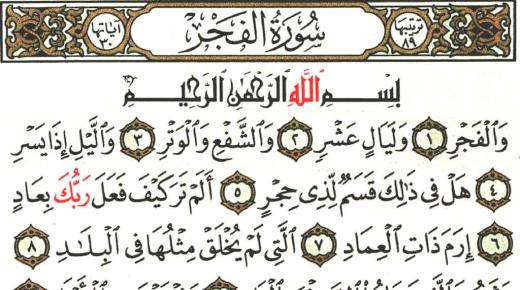 ترتيبها ٨٩ سُورَةُ الفَجْرِ آياتها ٣٠
بِسْمِ اللَّهِ الرَّحْمَٰنِ الرَّحِيمِ
وَالْفَجْرِ ١ وَلَيَالٍ عَشْرٍ ٢ وَالشَّفْعِ وَالْوَتْرِ ٣ وَالَّيْلِ إِذَا يَسْرِ
٤ هَلْ فِى ذَٰلِكَ قَسَمٌ لِّذِى حِجْرٍ ٥ أَلَمْ تَرَ كَيْفَ فَعَلَ رَبُّكَ بِعَادٍ
٦ إِرَمَ ذَاتِ الْعِمَادِ ٧ الَّتِى لَمْ يُخْلَقْ مِثْلُهَا فِى الْبِلَٰدِ ٨